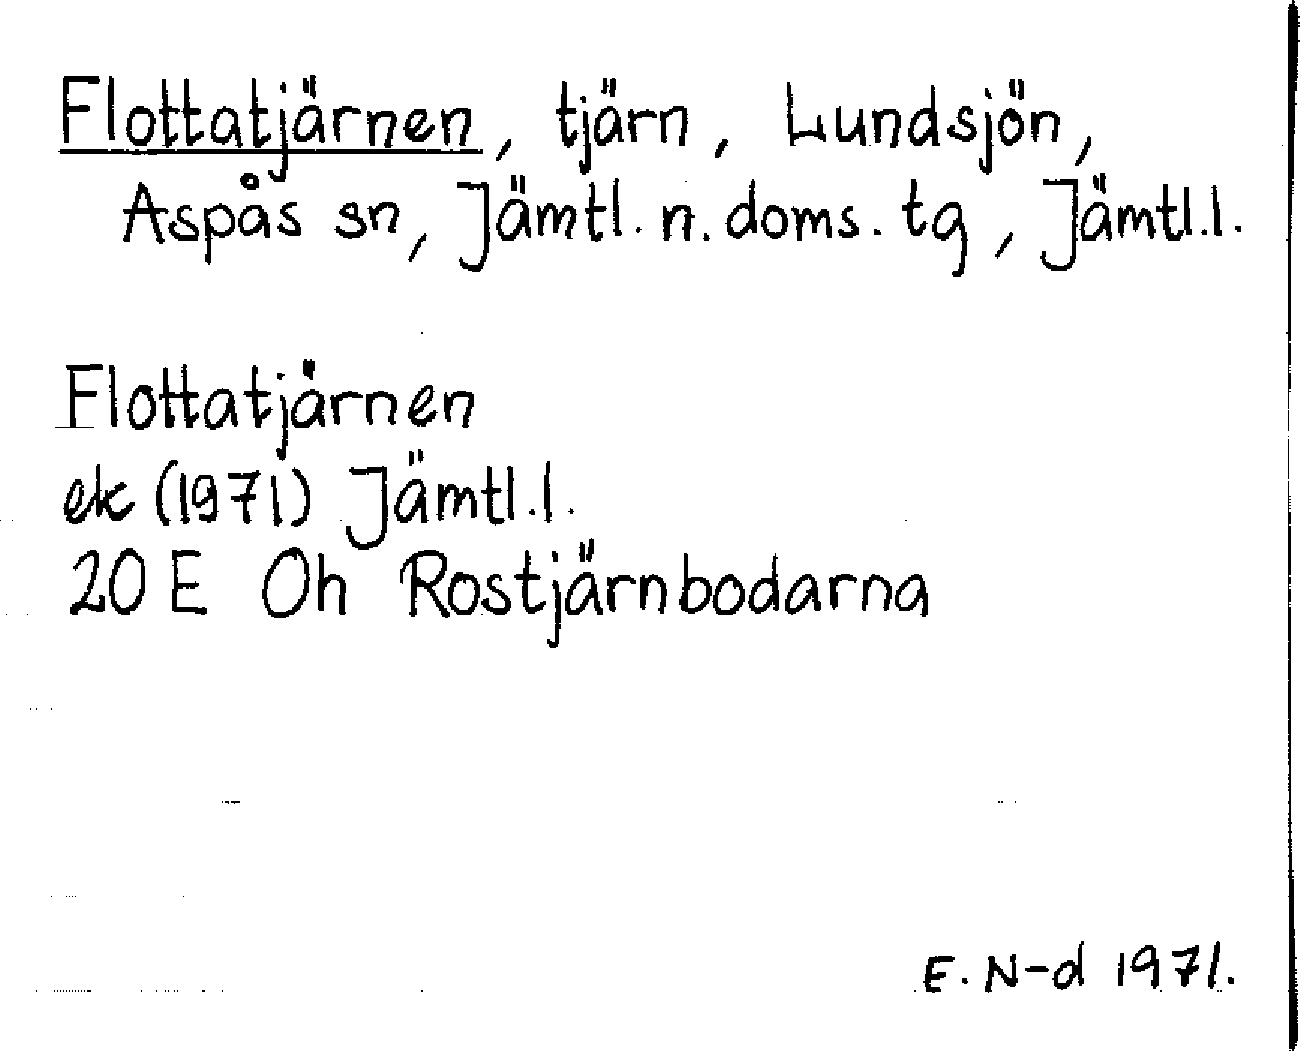 Flottatjärnen, tjärn, Lundsjön,
Aspås sn, Jämtl. n. doms. tg, Jämtl.l.
Flottatjärnen
ek (1971) Jämtl.l.
20 E Oh Rostjärnbodarna
E. N-d 1971.